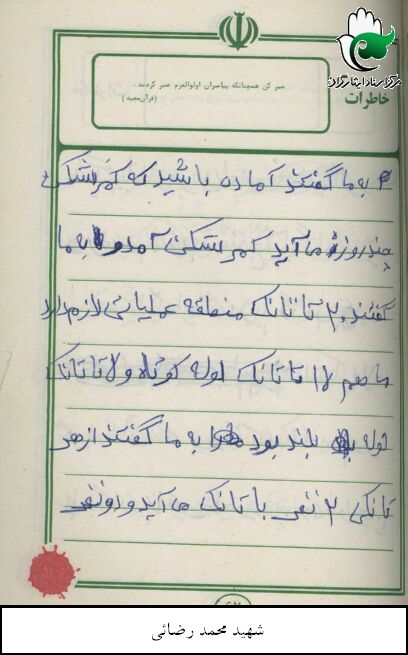 مرکز اسناد ایثارگران
صبر کن همچنانکه پیامبران اولوالعزم صبر کردند.
(قرآن مجید)
خاطرات
به ما گفتند آماده باشید که کمرشکن
چند روزه می‌آید کمرشکن آمد و به ما
گفتند ۲۰ تا تانک منطقه عملیاتی لازم دارد
ما هم ۱۷ تا تانک لوله کوتاه و ۷ تا تانک
لوله بلند بود به ما گفتند از هر
تانکی ۲ نفر با تانک می‌آید و دو نفر
شهید محمد رضائی